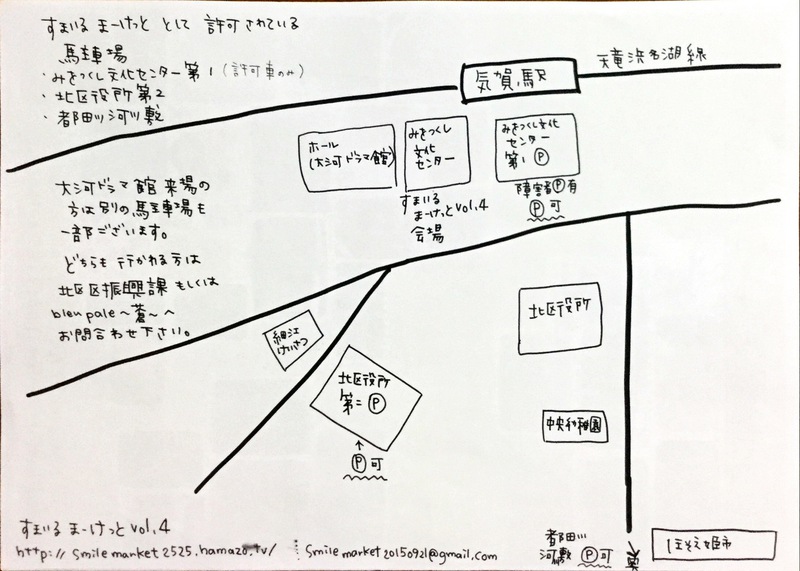 すまいる まーけっと として 許可されている
駐車場
・みをつくし文化センター第1(許可車のみ)
・北区役所第2
・都田川河川敷
大河ドラマ館来場の
方は別の駐車場も
一部ございます。
どちらも行かれる方は
北区区振興課もしくは
bleu pale〜蒼〜へ
お問合わせ下さい。
気賀駅
天竜浜名湖線
ホール
(大河ドラマ館)
みをつくし
文化
センター
すまいる
まーけっとvol.4
会場
みをつくし文化
センター
第1 Ⓟ
障害者Ⓟ有
Ⓟ可
細江
けいさつ
北区役所
第二 Ⓟ
↑
Ⓟ可
北区役所
中央幼稚園
都田川
河川敷 Ⓟ可
すまいる まーけっと vol.4
http://smilemarket2525.hamazo.tv/
smilemarket20150921@gmail.com